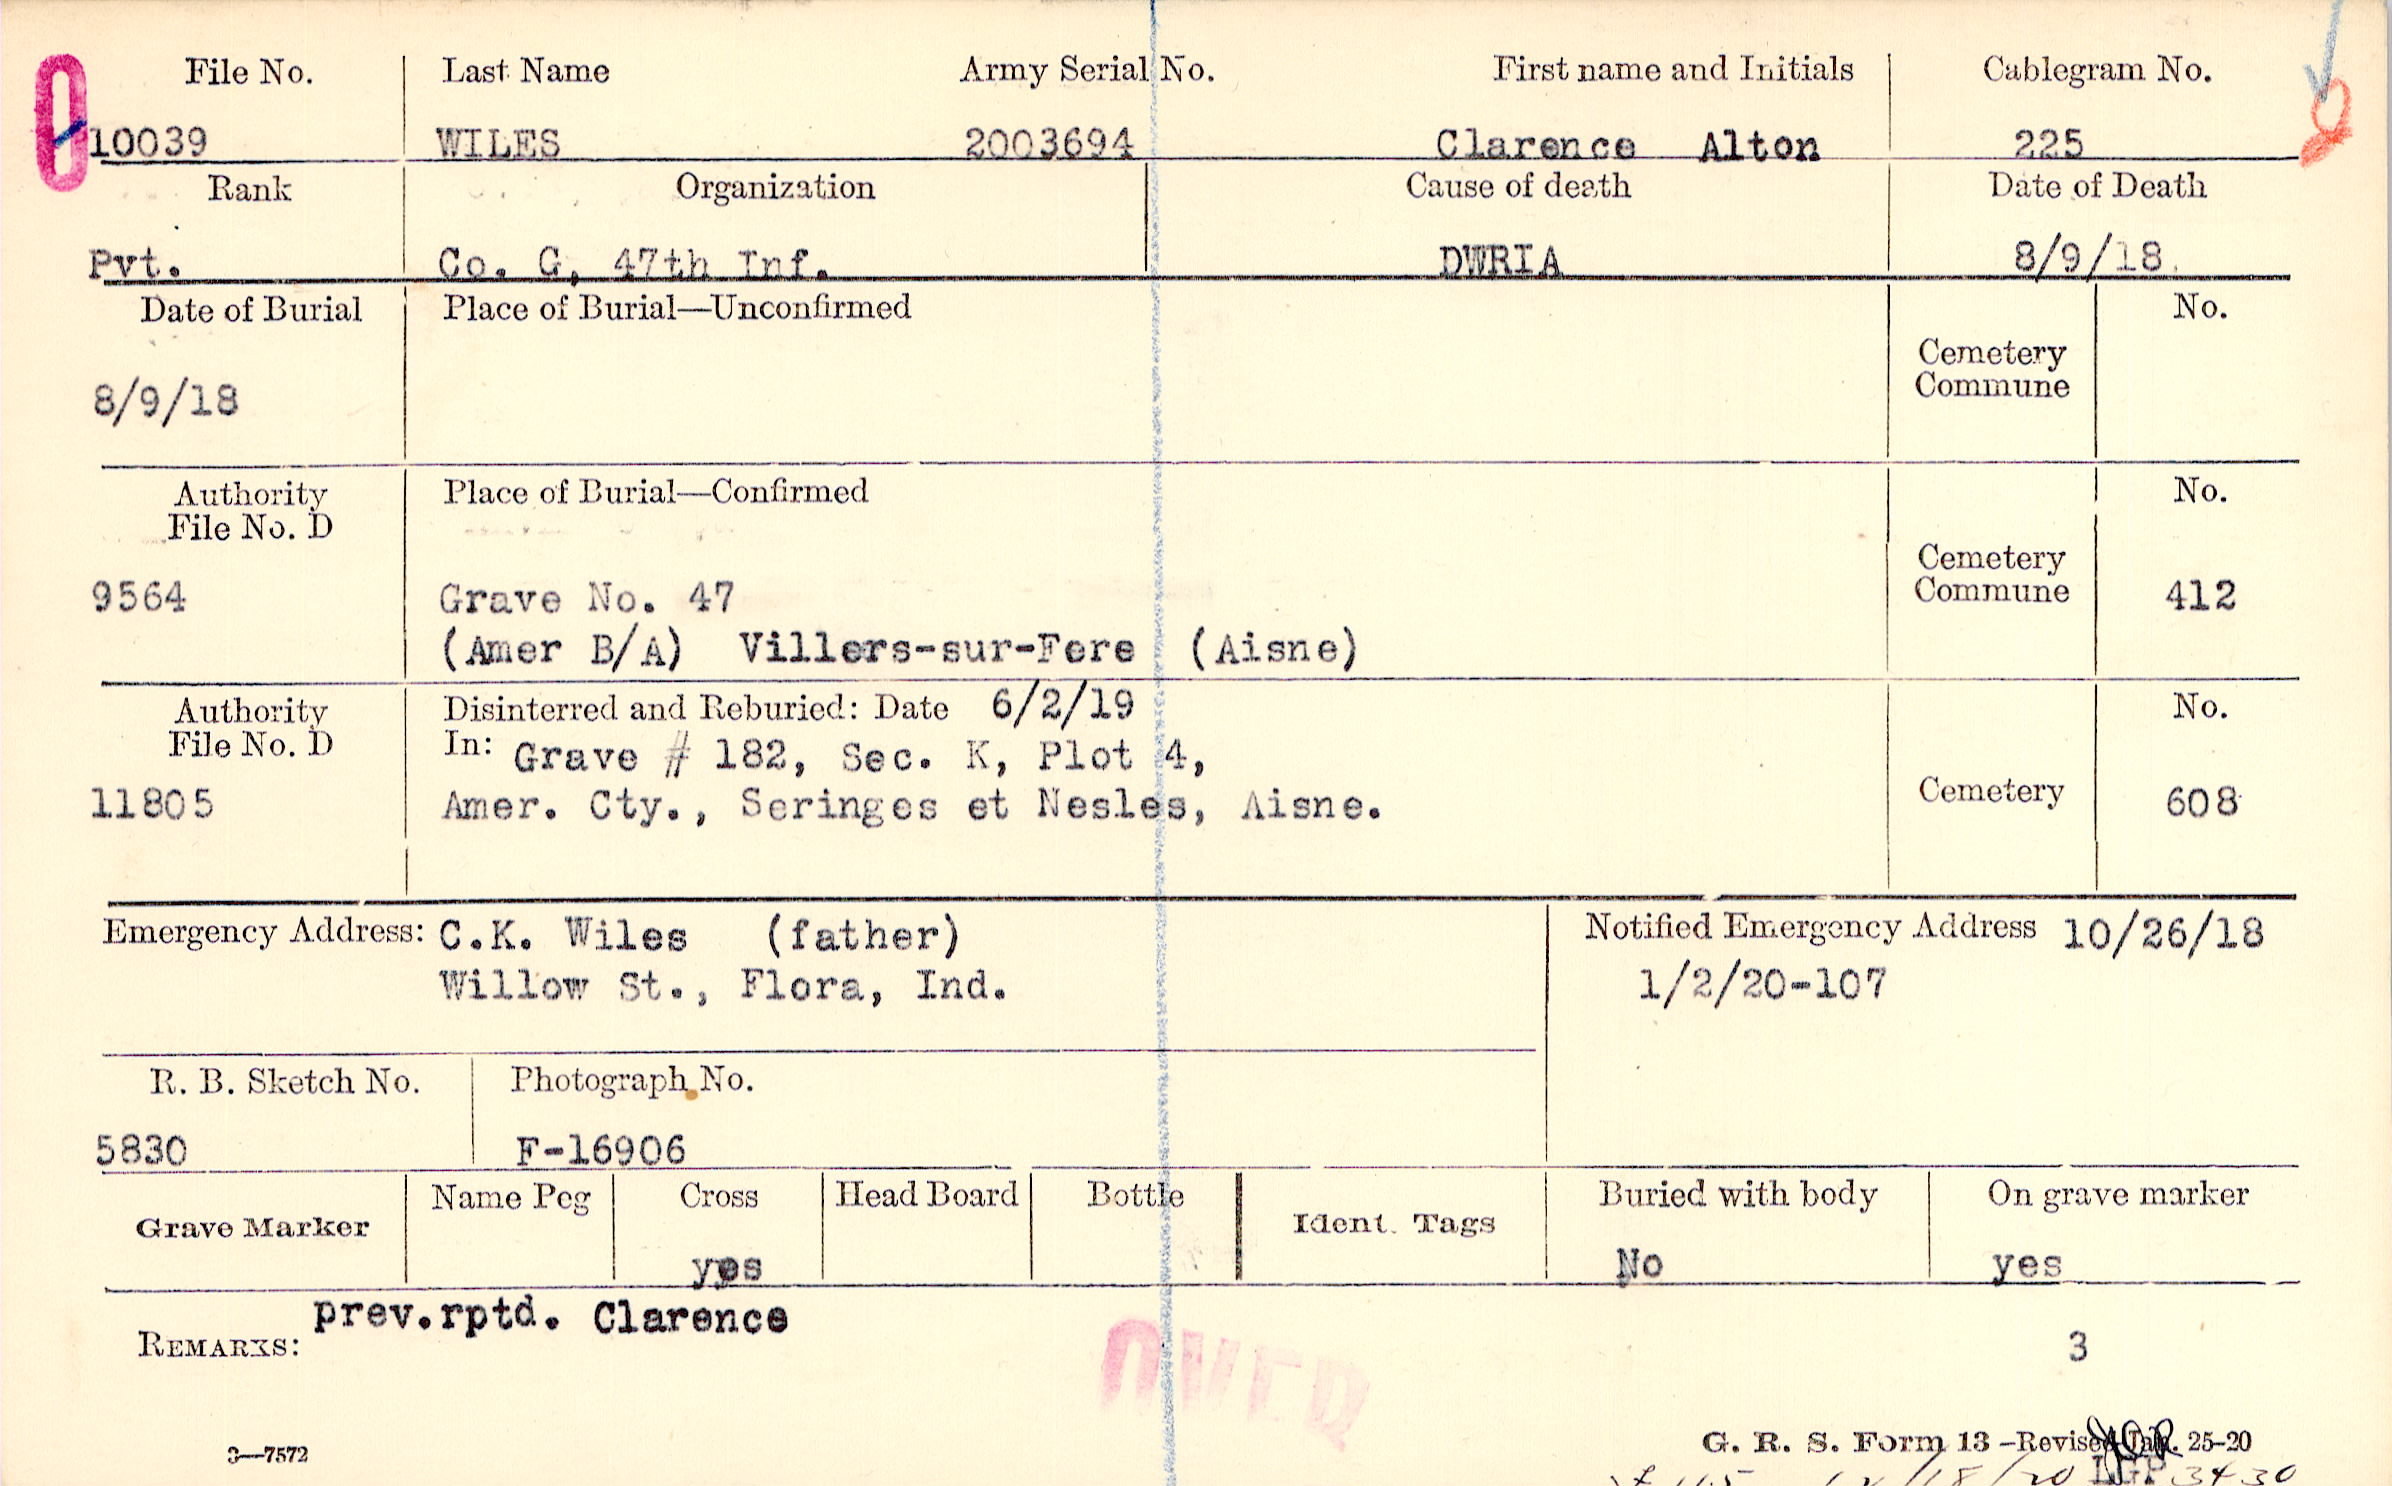 File No. Last Name Army Serial No. First name and Initials Cablegram No.
10039 WILES 2003694 Clarence Alton 225
Rank Organization Cause of death Date of Death
Pvt. Co. G, 47th Inf. DWRIA 8/9/18.
Date of Burial Place of Burial—Unconfirmed No.
Cemetery
Commune
8/9/18
Authority Place of Burial—Confirmed No.
File No. D
Cemetery
9564 Grave No. 47 Commune 412
(Amer B/A) Villers-sur-Fere (Aisne)
Authority Disinterred and Reburied: Date 6/2/19 No.
File No. D In: Grave # 182, Sec. K, Plot 4,
11805 Amer. Cty., Seringes et Nesles, Aisne. Cemetery 608
Emergency Address: C.K. Wiles (father) Notified Emergency Address 10/26/18
Willow St., Flora, Ind. 1/2/20-107
R. B. Sketch No. Photograph No.
5830 F-16906
Grave Marker Name Peg Cross Head Board Bottle Ident. Tags Buried with body On grave marker
yes No yes
REMARKS: prev.rptd. Clarence
3
OVER
3—7572 G. R. S. Form 13 –Revised Jan. 25-20
12/18/20 LGP 3430